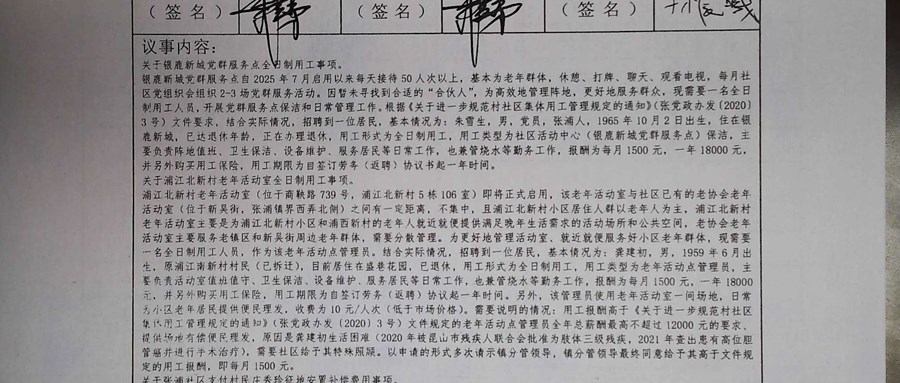 （签名） （签名） （签名）
议事内容：
关于银鹿新城党群服务点全日制用工事项。
银鹿新城党群服务点自2025年7月启用以来每天接待50人次以上，基本为老年群体，休憩、打牌、聊天、观看电视，每月社
区党组织会组织2-3场党群服务活动。因暂未寻找到合适的“合伙人”，为高效地管理阵地，更好地服务群众，现需要一名全日
制用工人员，开展党群服务点保洁和日常管理工作。根据《关于进一步规范村社区集体用工管理规定的通知》（张党政办发〔2020〕
3号）文件要求，结合实际情况，招聘到一位居民，基本情况为：朱雪生，男，党员，张浦人，1965年10月2日出生，住在银
鹿新城，已达退休年龄，正在办理退休，用工形式为全日制用工，用工类型为社区活动中心（银鹿新城党群服务点）保洁，主
要负责阵地值班、卫生保洁、设备维护、服务居民等日常工作，也兼管烧水等勤务工作，报酬为每月1500元，一年18000元，
并另外购买用工保险，用工期限为自签订劳务（返聘）协议书起一年时间。
关于浦江北新村老年活动室全日制用工事项。
浦江北新村老年活动室（位于商鞅路739号，浦江北新村5栋106室）即将正式启用，该老年活动室与社区已有的老协会老年
活动室（位于新吴街，张浦镇界西弄北侧）之间有一定距离，不集中，且浦江北新村小区居住人群以老年人为主，浦江北新村
老年活动室主要是为浦江北新村小区和浦西新村的老年人就近就便提供满足晚年生活需求的活动场所和公共空间，老协会老年
活动室主要服务老镇区和新吴街周边老年群体，需要分散管理。为更好地管理活动室、就近就便服务好小区老年群体，现需要
一名全日制用工人员，作为该老年活动点管理员。结合实际情况，招聘到一位居民，基本情况为：龚建初，男，1959年6月出
生，原浦江南新村村民（已拆迁），目前居住在盛巷花园，已退休，用工形式为全日制用工，用工类型为老年活动点管理员，主
要负责活动室值班值守、卫生保洁、设备维护、服务居民等日常工作，也兼管烧水等勤务工作，报酬为每月1500元，一年18000
元，并另外购买用工保险，用工期限为自签订劳务（返聘）协议起一年时间。另外，该管理员使用老年活动室一间场地，日常
为小区老年居民提供便民理发，收费为10元/人次（低于市场价格）。需要说明的情况：用工报酬高于《关于进一步规范村社区
集体用工管理规定的通知》（张党政办发〔2020〕3号）文件规定的老年活动点管理员全年总薪酬最高不超过12000元的要求、
提供场地有偿便民理发，原因是龚建初生活困难（2020年被昆山市残疾人联合会批准为肢体三级残疾，2021年查出患有高位胆
管癌并进行手术治疗），需要社区给予其特殊照顾。以申请的形式多次请示镇分管领导，镇分管领导最终同意给予其高于文件规
定的用工报酬，即每月1500元。
关于张浦社区支付村民庄秀珍征地安置补偿费用事项。